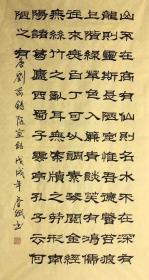 山不在高有仙則名水不在深有
龍則靈斯是陋室惟吾德馨苔痕
上階綠草色入簾青談笑有鴻儒
往來無白丁可以調素琴閱金經
無絲竹之亂耳無案牘之勞形南
陽諸葛廬西蜀子雲亭孔子云何
陋之有
唐劉禹錫陋室銘戊戌年春書